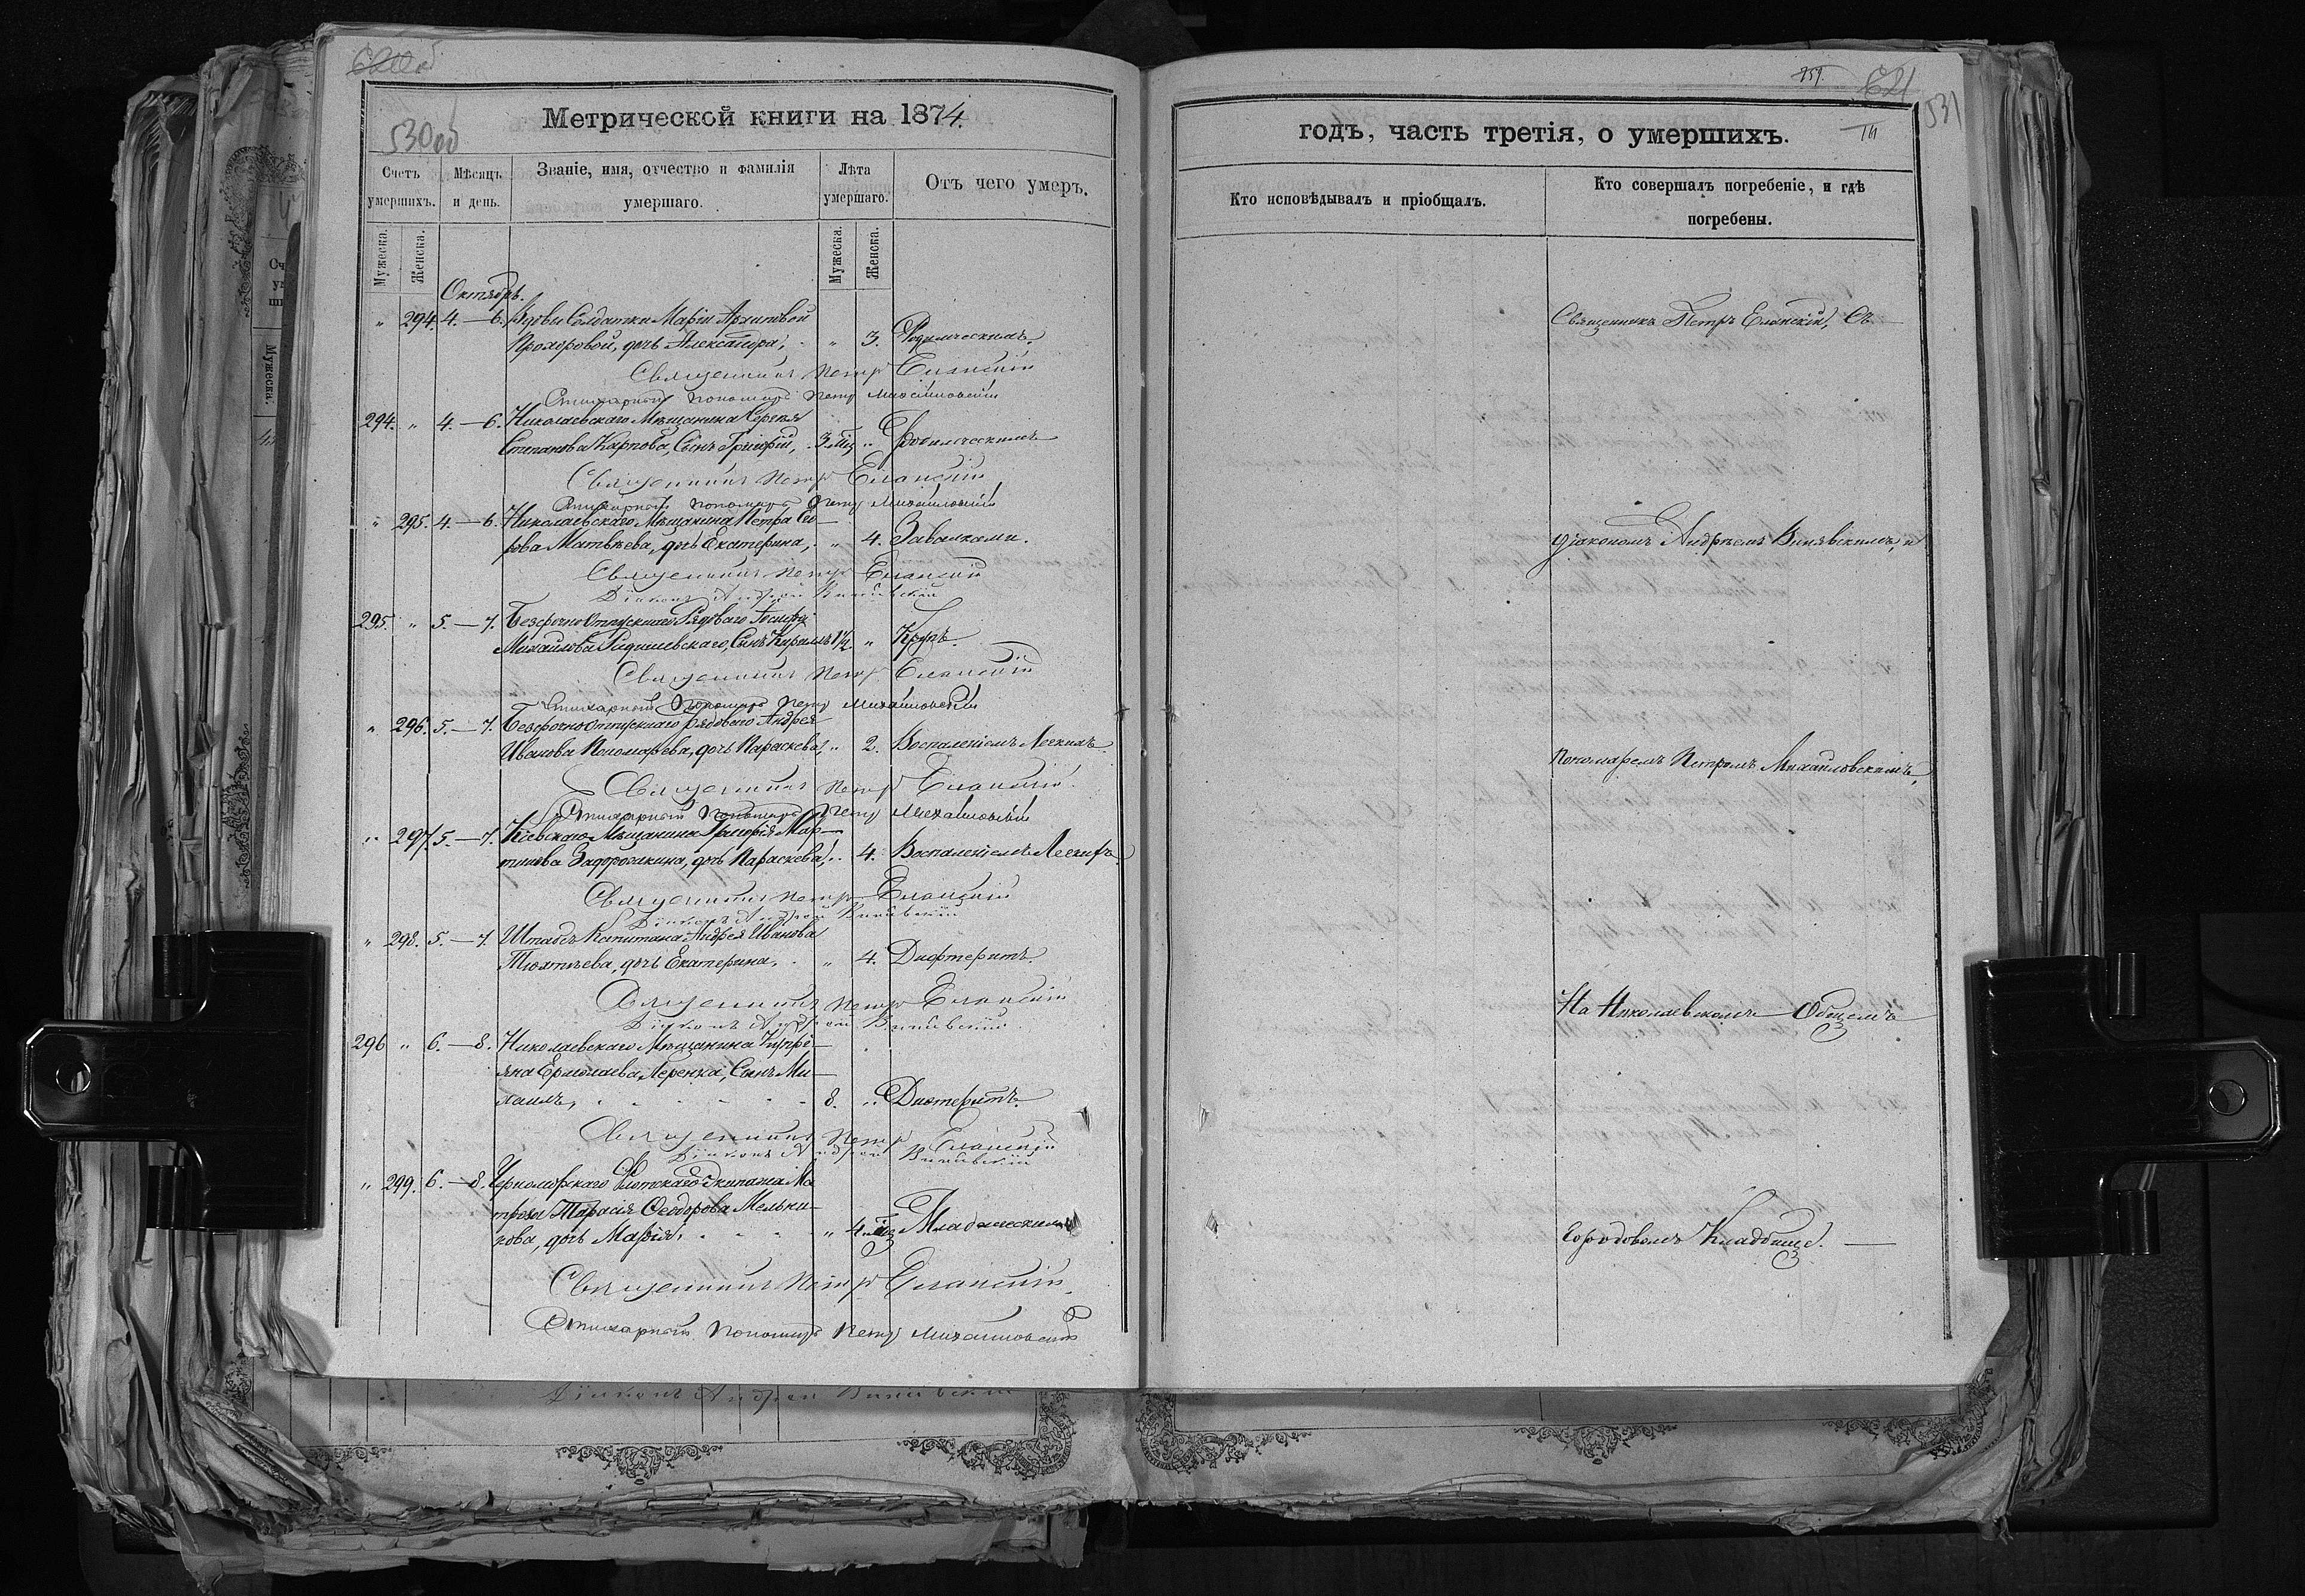 530об
Метрической книги на 1874.
Счетъ умершихъ.
Мѣсяцъ и день.
Званіе, имя, отчество и фамилія умершаго.
Лѣта умершаго.
Отъ чего умеръ.
Мужеска.
Женска.
Мужеска.
Женска.
Октябрь.
" 294. 4. — 6. Вдовы Солдатки Маріи Архиповой
Прохоровой, дочь Александра, " 3. Родимческимъ.
Священникъ Петръ Еланскій
Стихарный Пономарь Петръ Михайловскій
294. " 4. — 6. Николаевскаго Мѣщанина Сергѣя
Степанова Карпова, Сынъ Григорій, 3 мц " Родимческимъ
Священникъ Петръ Еланскій
Стихарный Пономарь Петръ Михайловскій
" 295. 4. — 6. Николаевскаго Мѣщанина Петра
Матвѣева, дочь Екатерина, " 4. Завалками.
Священникъ Петръ Еланскій
Діаконъ Андрей Винявскій
295. " 5. — 7. Безсрочноотпускнаго Рядоваго Іосифа
Михайлова Сынъ Кириллъ 1½ " Крупъ.
Священникъ Петръ Еланскій
Стихарный Пономарь Петръ Михайловскій
" 296. 5. — 7. Безсрочноотпускнаго рядоваго Андрея
Иванова Пономарева, дочь Параскева, " 2. Воспаленіемъ Легкихъ.
Священникъ Петръ Еланскій
Стихарный Пономарь Петръ Михайловскій
" 297. 5. — 7. Кіевскаго Мѣщанина Григорія Мар-
тинова Задорожкина, дочь Параскева, " 4. Воспаленіемъ Легкихъ.
Священникъ Петръ Еланскій
Діаконъ Андрей Винявскій
" 298. 5. — 7. Штабсъ Капитана Андрея Иванова
дочь Екатерина, " 4. Дифтеритъ.
Священникъ Петръ Еланскій
Діаконъ Андрей Винявскій
296 " 6. — 8. Николаевскаго Мѣщанина Купрі-
яна Ермолаева Сынъ Ми-
хаилъ, 8. " Дифтеритъ.
Священникъ Петръ Еланскій
Діаконъ Андрей Винявскій
" 299. 6. — 8. Черноморскаго Флотскаго Экипажа Ма
троса Тарасія Ѳеодорова Мельни-
кова, дочь Марія, " 4 мц Младенческимъ
Священникъ Петръ Еланскій
Стихарный Пономарь Петръ Михайловскій
Діаконъ Андрей Винявскій
621
531
годъ, часть третія, о умершихъ.
Кто исповѣдывалъ и пріобщалъ.
Кто совершалъ погребеніе, и гдѣ погребены.
Священникъ Петръ Еланскій, Съ
Діакономъ Андреемъ Винявскимъ, и
Пономаремъ Петромъ Михайловскимъ,
На Николаевскомъ Общемъ
Городовомъ Кладбище.